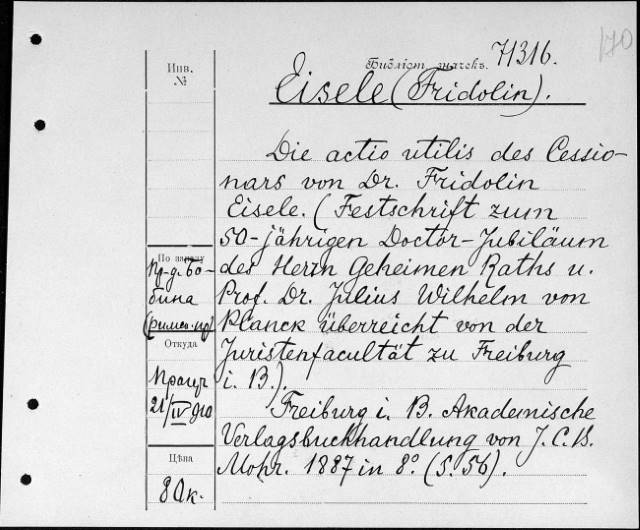 170
Библіот. значекъ. 71316.
Инв.
№
Eisele (Fridolin).
Die actio utilis des Cessio-
nars von Dr. Fridolin
Eisele. (Festschrift zum
50-jährigen Doctor-Jubiläum
des Herrn Geheimen Raths u.
Prof. Dr. Julius Wilhelm von
Planck überreicht von der
Juristenfacultät zu Freiburg
i. B.).
Freiburg i. B. Akademische
Verlagsbuchhandlung von J. C. B.
Mohr. 1887 in 8º. (S. 56).
По заказу
Пр-д. Бо-
бина
Откуда
21/IV 910
Цѣна
80 к.